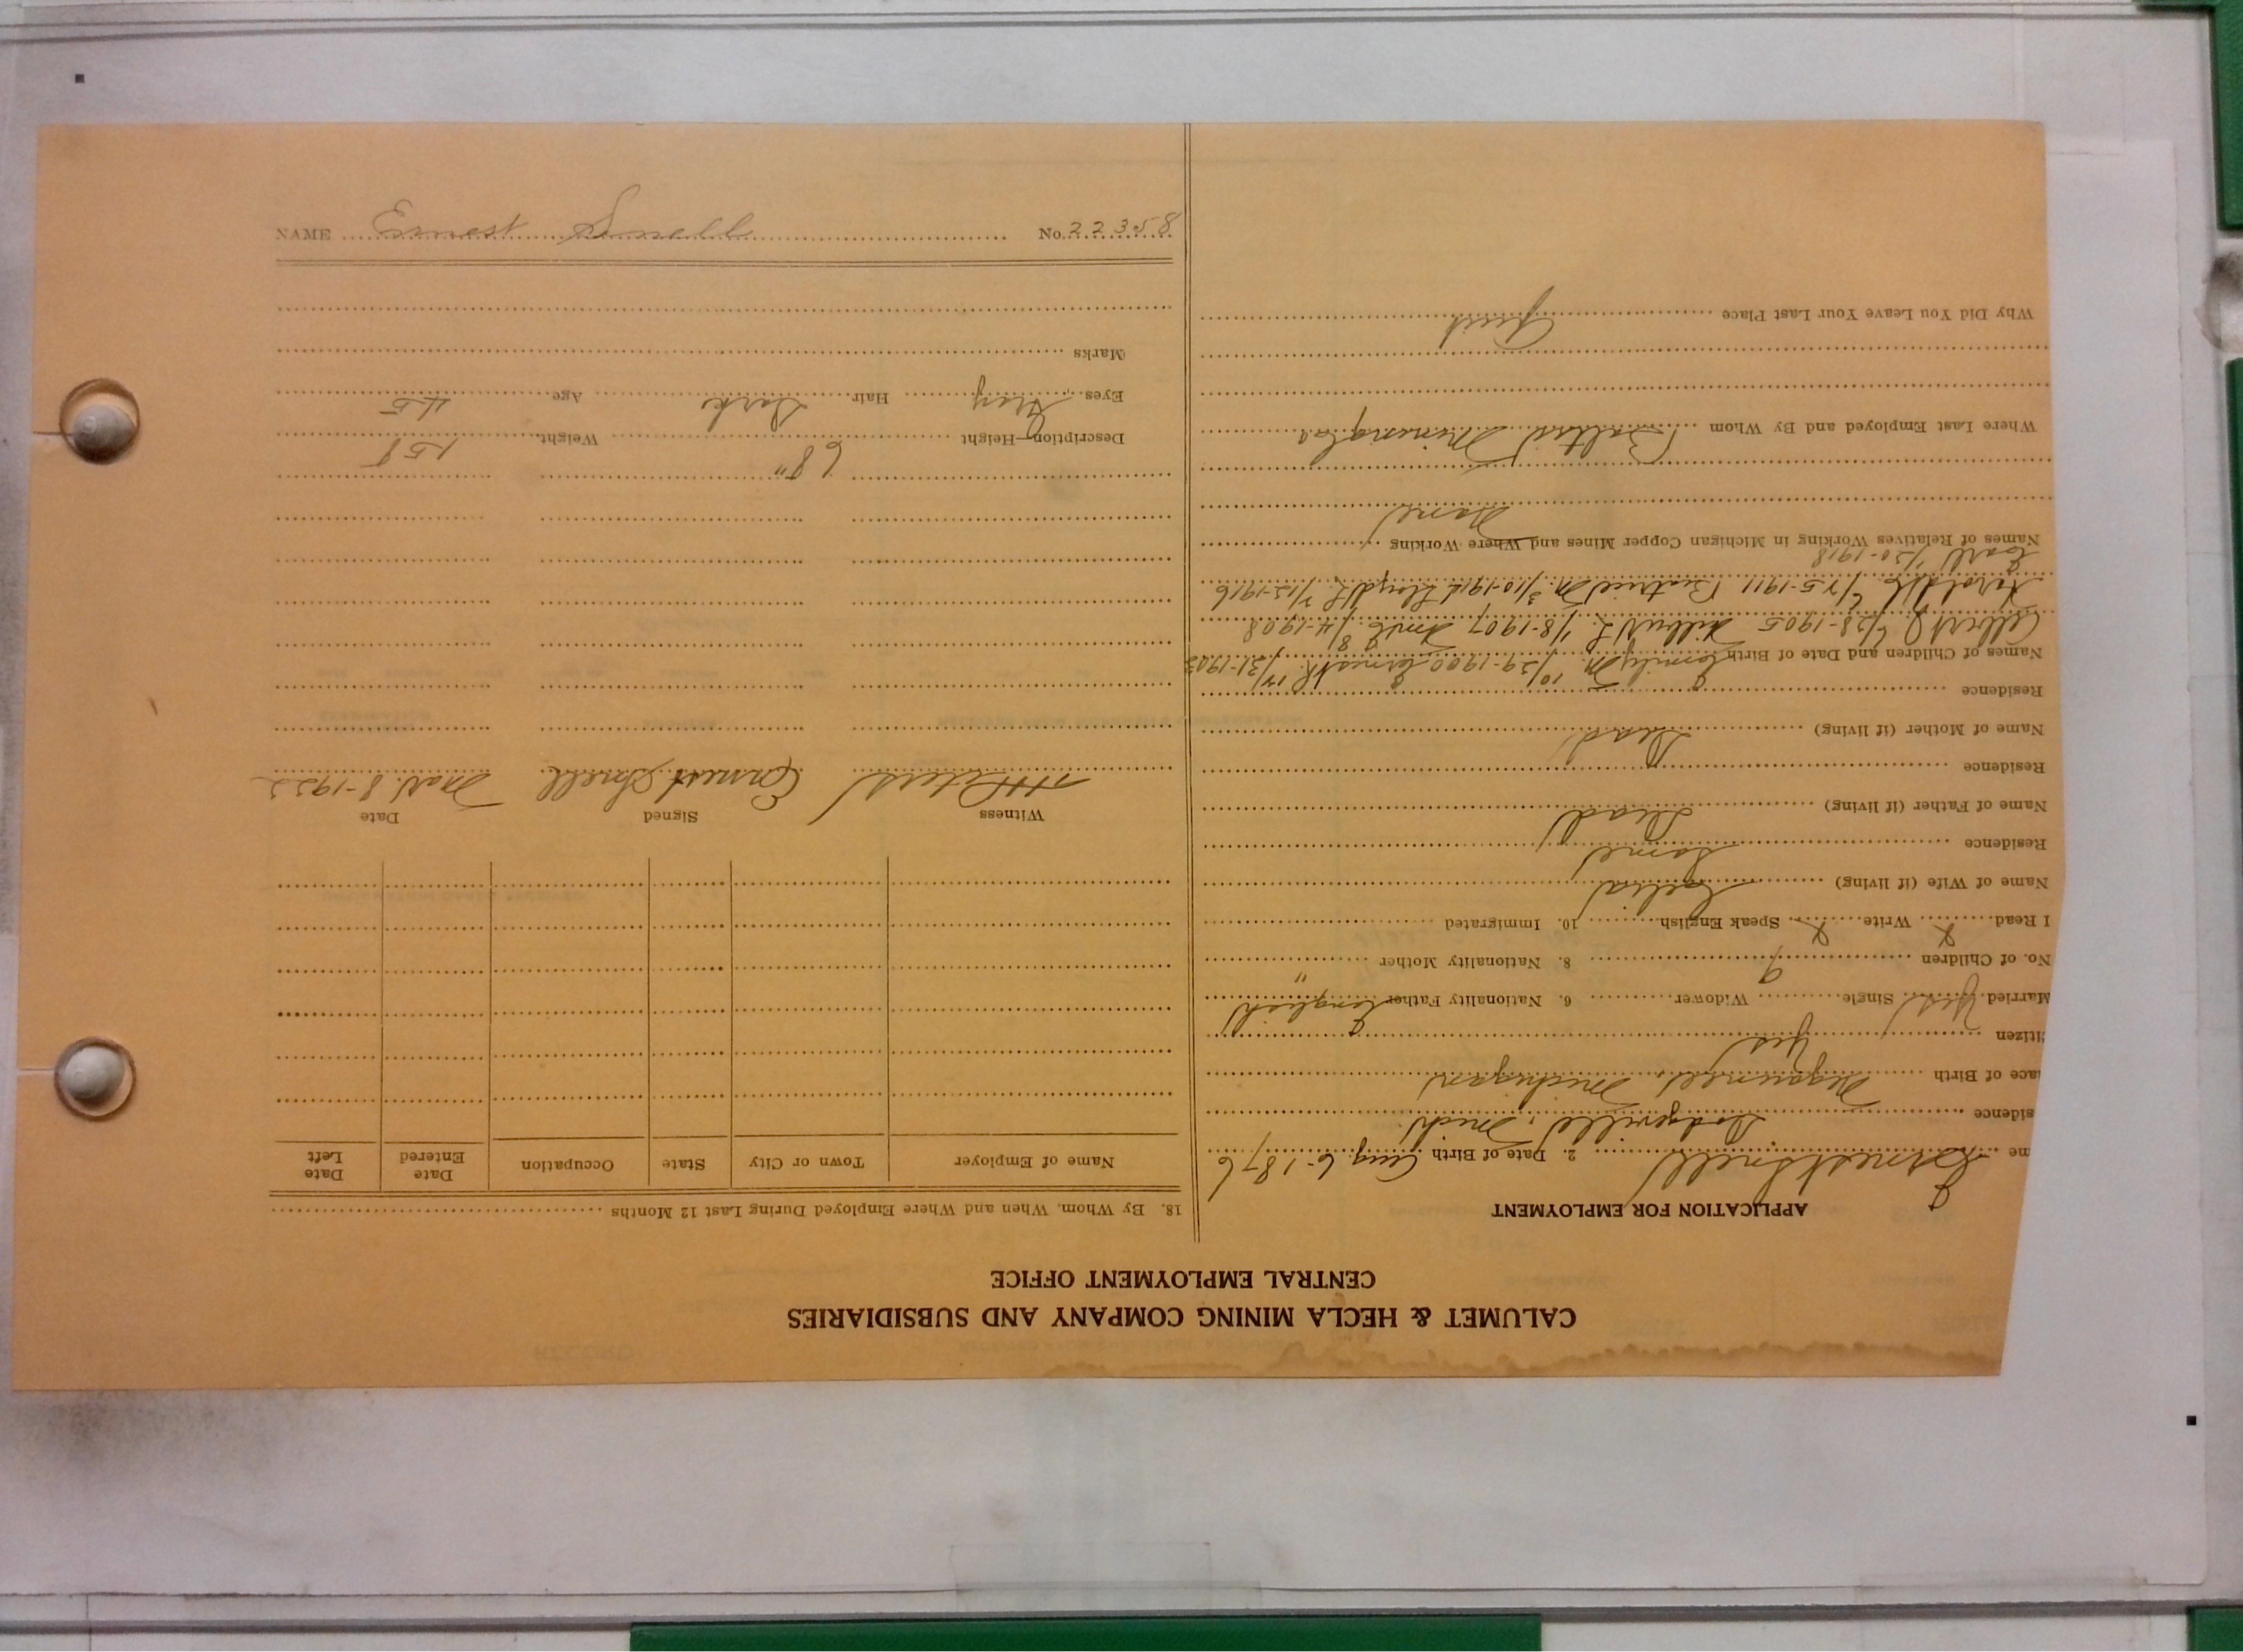 NAME Ernest Snell No. 22358
CALUMET & HECLA MINING COMPANY AND SUBSIDIARIES
CENTRAL EMPLOYMENT OFFICE
APPLICATION FOR EMPLOYMENT
me Ernest Snell 2. Date of Birth Aug. 6-1876
sidence Dodgeville, Mich.
ace of Birth Negaunee, Michigan
itizen Yes
Married Yes Single Widower 6. Nationality Father English
No. of Children 9 8. Nationality Mother "
I Read X Write X Speak English 10. Immigrated
Name of Wife (if living) Celia
Residence Same
Name of Father (if living) Dead
Residence
Name of Mother (if living) Dead
Residence
Names of Children and Date of Birth Emily M. 10/29-1900 Ernest R. 12/31-1903
Albert J. 6/28-1905 Wilbert L. 1/8-1907 8/4-1908
Harold 6/25-1911 Beatrice M. 3/10-1914 Lloyd L. 2/12-1916
Earl 1/20-1918
Names of Relatives Working in Michigan Copper Mines and Where Working None
Where Last Employed and By Whom Baltic Mining Co
Why Did You Leave Your Last Place Quit
18. By Whom, When and Where Employed During Last 12 Months
Name of Employer Town or City State Occupation Date Entered Date Left
Witness Signed Date
Peters Ernest Snell Mar. 8-1922
Description—Height 68" Weight 158
Eyes Gray Hair Dark Age 45
Marks